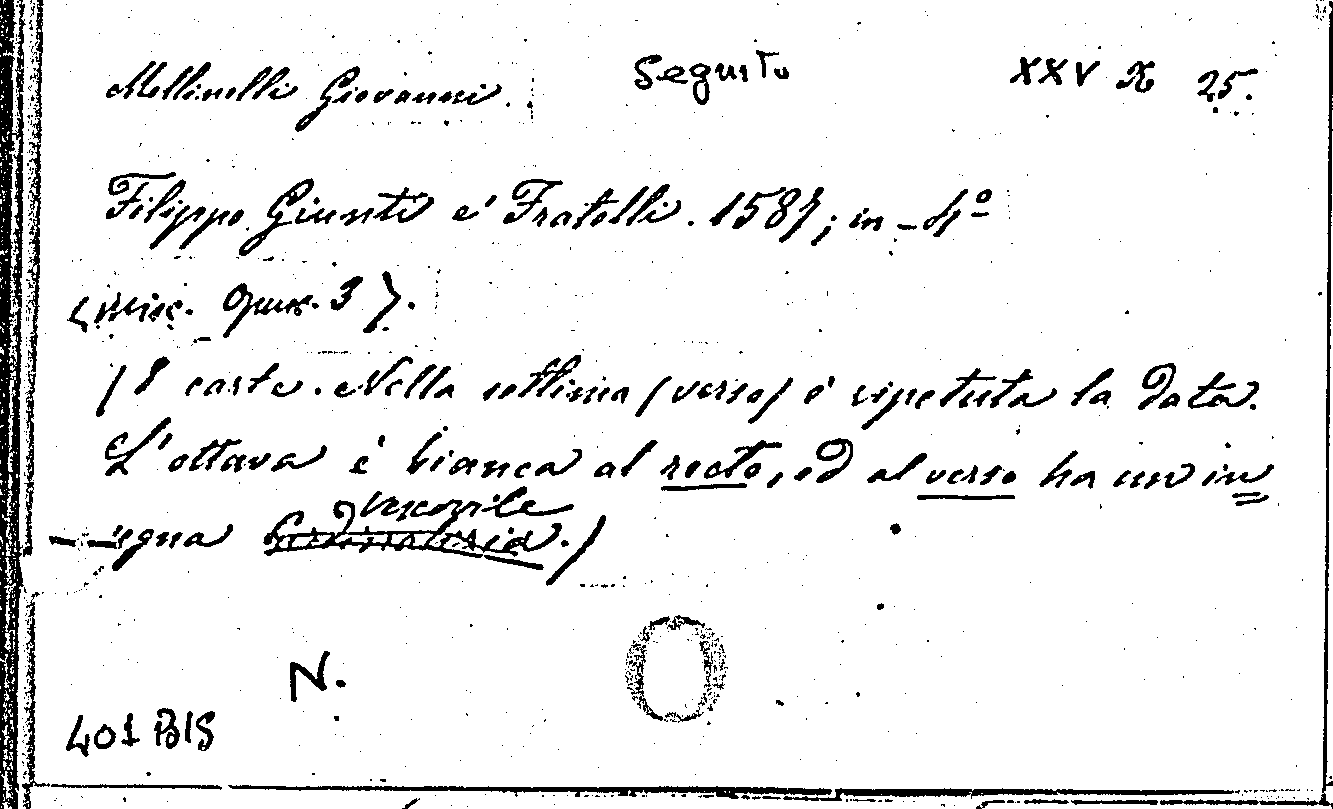 Mellinelli Giovanni. Seguito XXV X 25.
Filippo Giunti e' Fratelli. 1587; in-4º
(Misc. Opusc. 3).
(8 carte. Nella settima (verso) è ripetuta la data.
L'ottava è bianca al recto, ed al verso ha un in=
vescovile
segna .)
N.
401 BIS